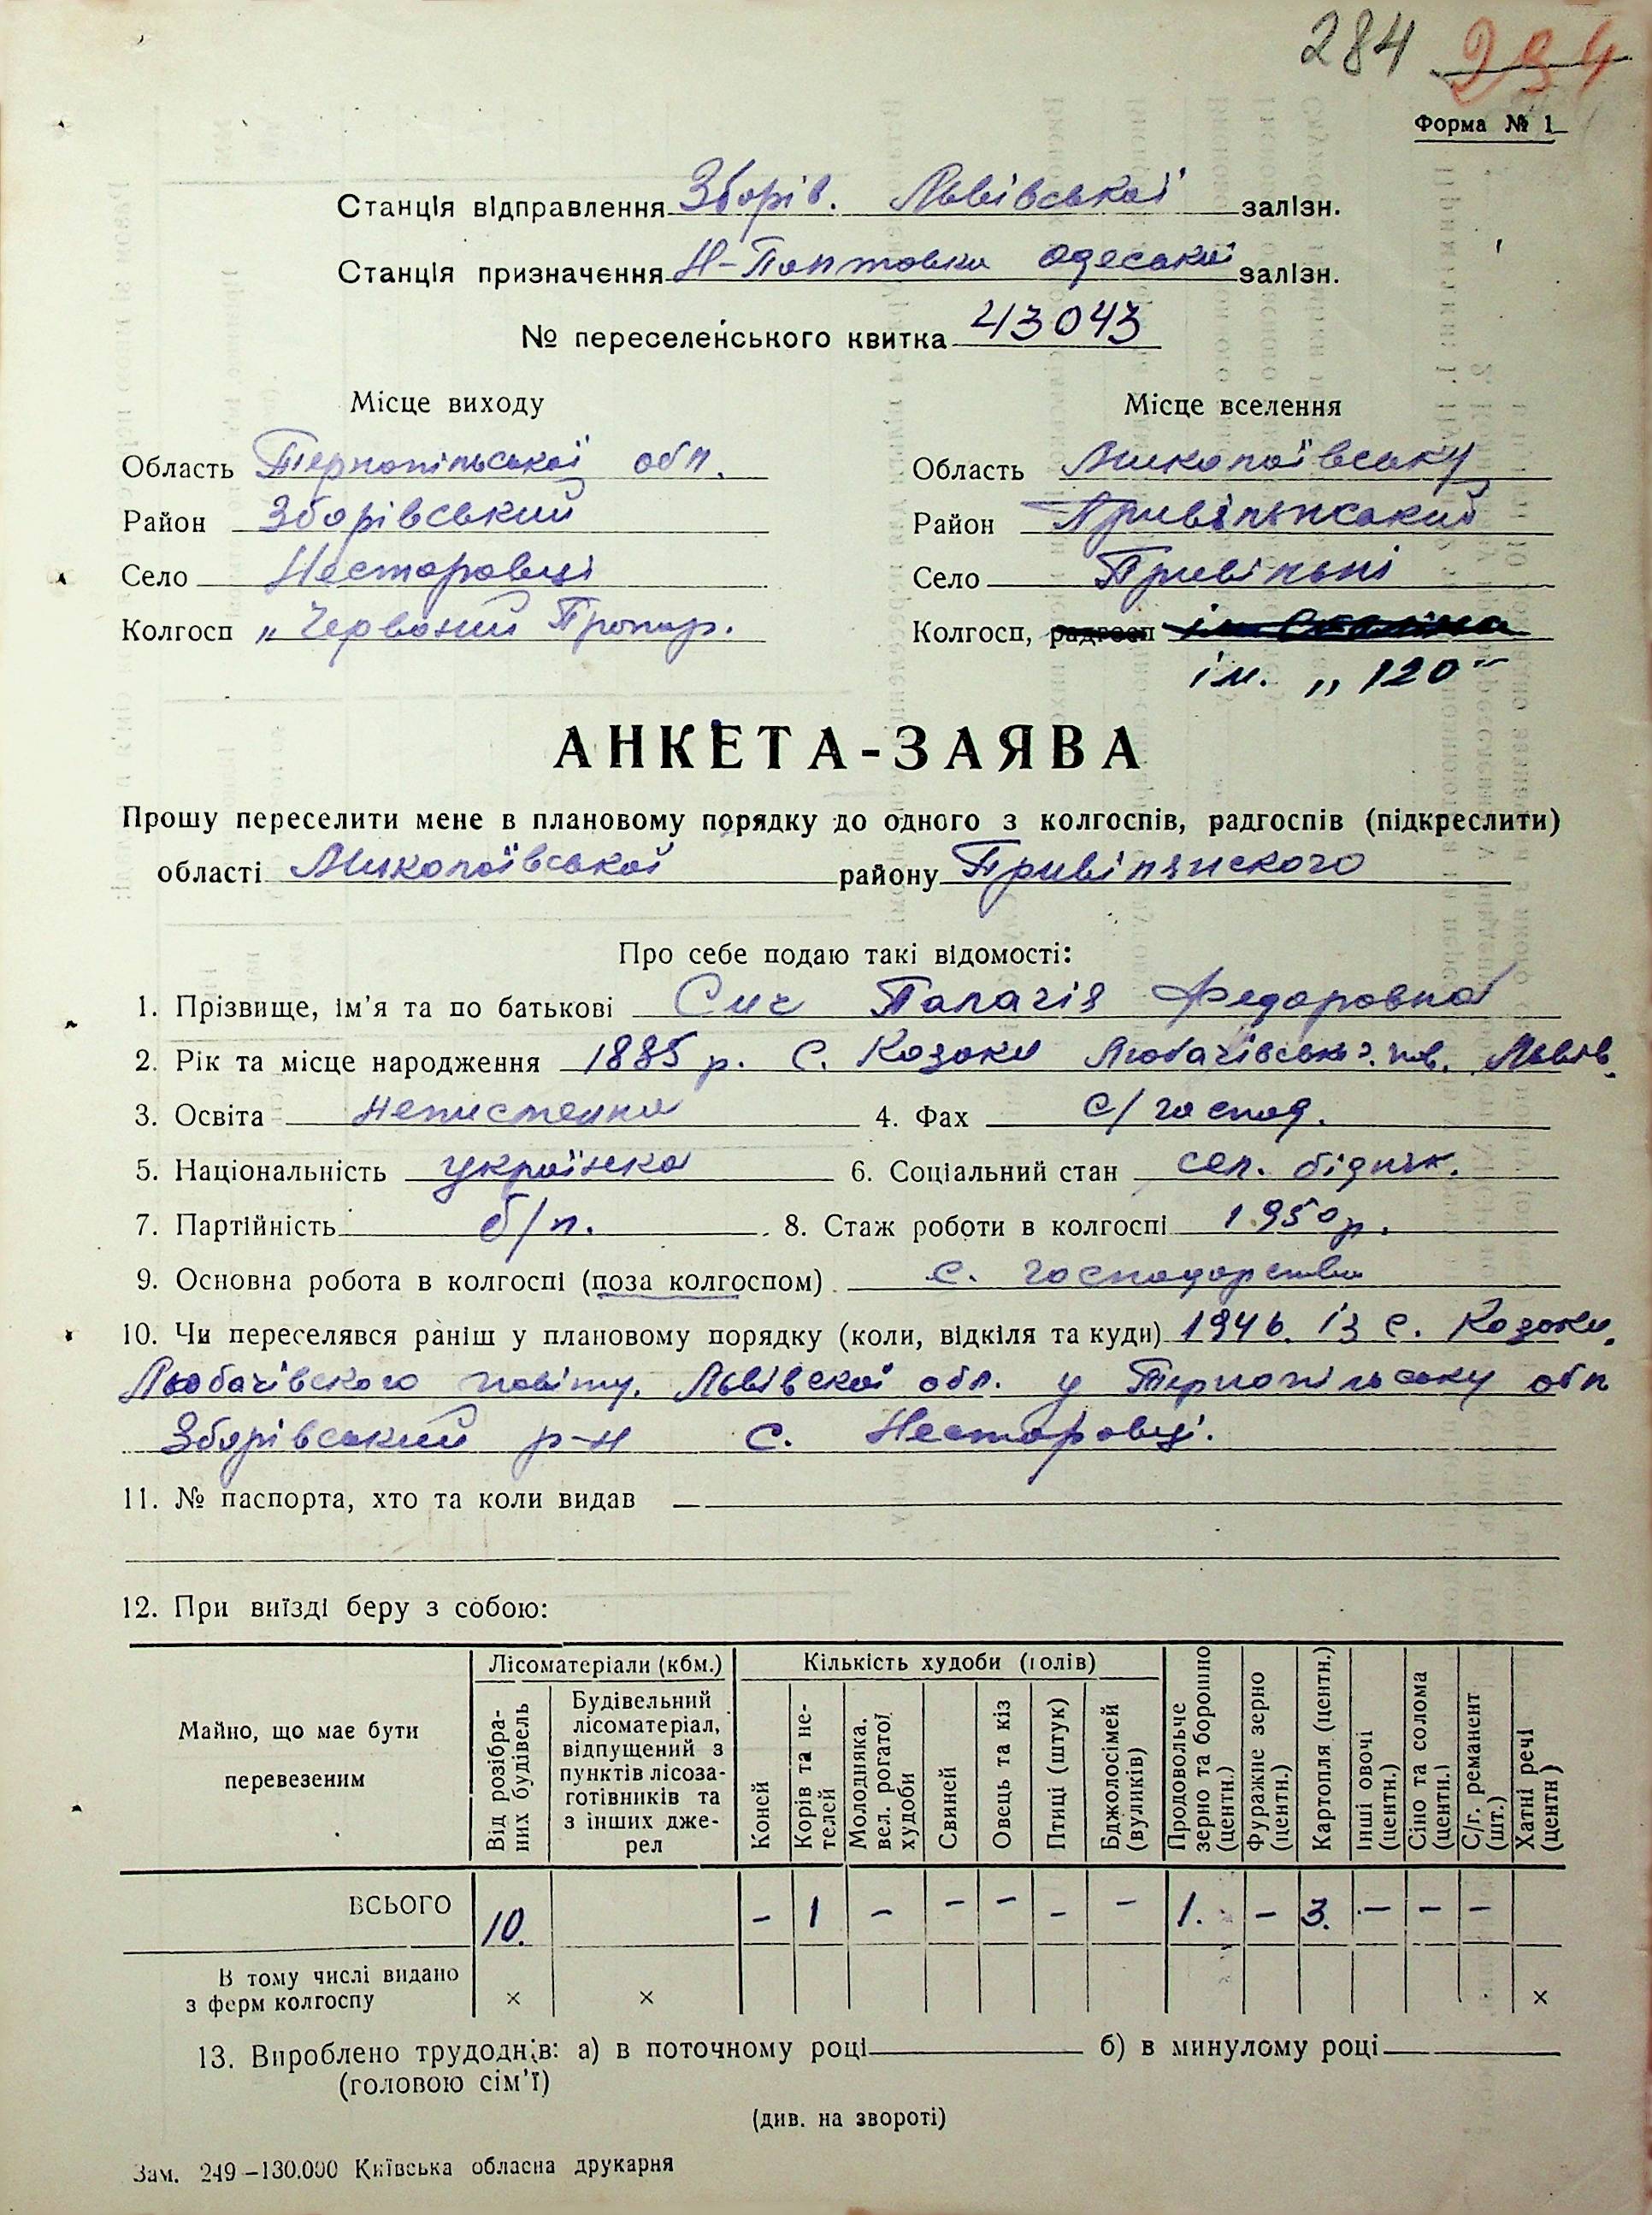 284 234
Форма № 1
Станція відправлення Зборів. Львівської залізн.
Станція призначення Н-Полтовки Одеської залізн.
№ переселенського квитка 43043
Місце виходу
Місце вселення
Область Тернопільської обл.
Область Миколаївську
Район Зборівський
Район Привільнський
Село Нестеровці
Село Привільні
Колгосп „Червоний Прапор.
Колгосп, радгосп ім Сталіна
ім. „120"
АНКЕТА-ЗАЯВА
Прошу переселити мене в плановому порядку до одного з колгоспів, радгоспів (підкреслити)
області Миколаївської району Привілянского
Про себе подаю такі відомості:
1. Прізвище, ім'я та по батькові Сич Палагія Федоровна
2. Рік та місце народження 1885 р. С. Козаки Любачівськ. пов. Львів.
3. Освіта неписменна 4. Фах с/господ.
5. Національність українка 6. Соціальний стан сел. біднячк.
7. Партійність б/п. 8. Стаж роботи в колгоспі 1950 р.
9. Основна робота в колгоспі (поза колгоспом) с. господарства
10. Чи переселявся раніш у плановому порядку (коли, відкіля та куди) 1946. із с. Козаки,
Любачівского повіту. Львівскої обл. у Тернопільську обл
Зборівський р-н с. Нестеровці.
11. № паспорта, хто та коли видав —
12. При виїзді беру з собою:
Майно, що має бути перевезеним
Лісоматеріали (кбм.)
Кількість худоби (голів)
Від розібраних будівель
Будівельний лісоматеріал, відпущений з пунктів лісозаготівників та з інших джерел
Коней
Корів та нетелей
Молодняка. вел. рогатої худоби
Свиней
Овець та кіз
Птиці (штук)
Бджолосімей (вуликів)
Продовольче зерно та борошно (центн.)
Фуражне зерно (центн.)
Картопля (центн.)
Інші овочі (центн.)
Сіно та солома (центн.)
С/г. реманент (шт.)
Хатні речі (центн)
ВСЬОГО 10. – 1 – – – – – 1. – 3. – – –
В тому числі видано
з ферм колгоспу × × ×
13. Вироблено трудоднів: а) в поточному році б) в минулому році
(головою сім'ї)
(див. на звороті)
Зам. 249–130.000 Київська обласна друкарня